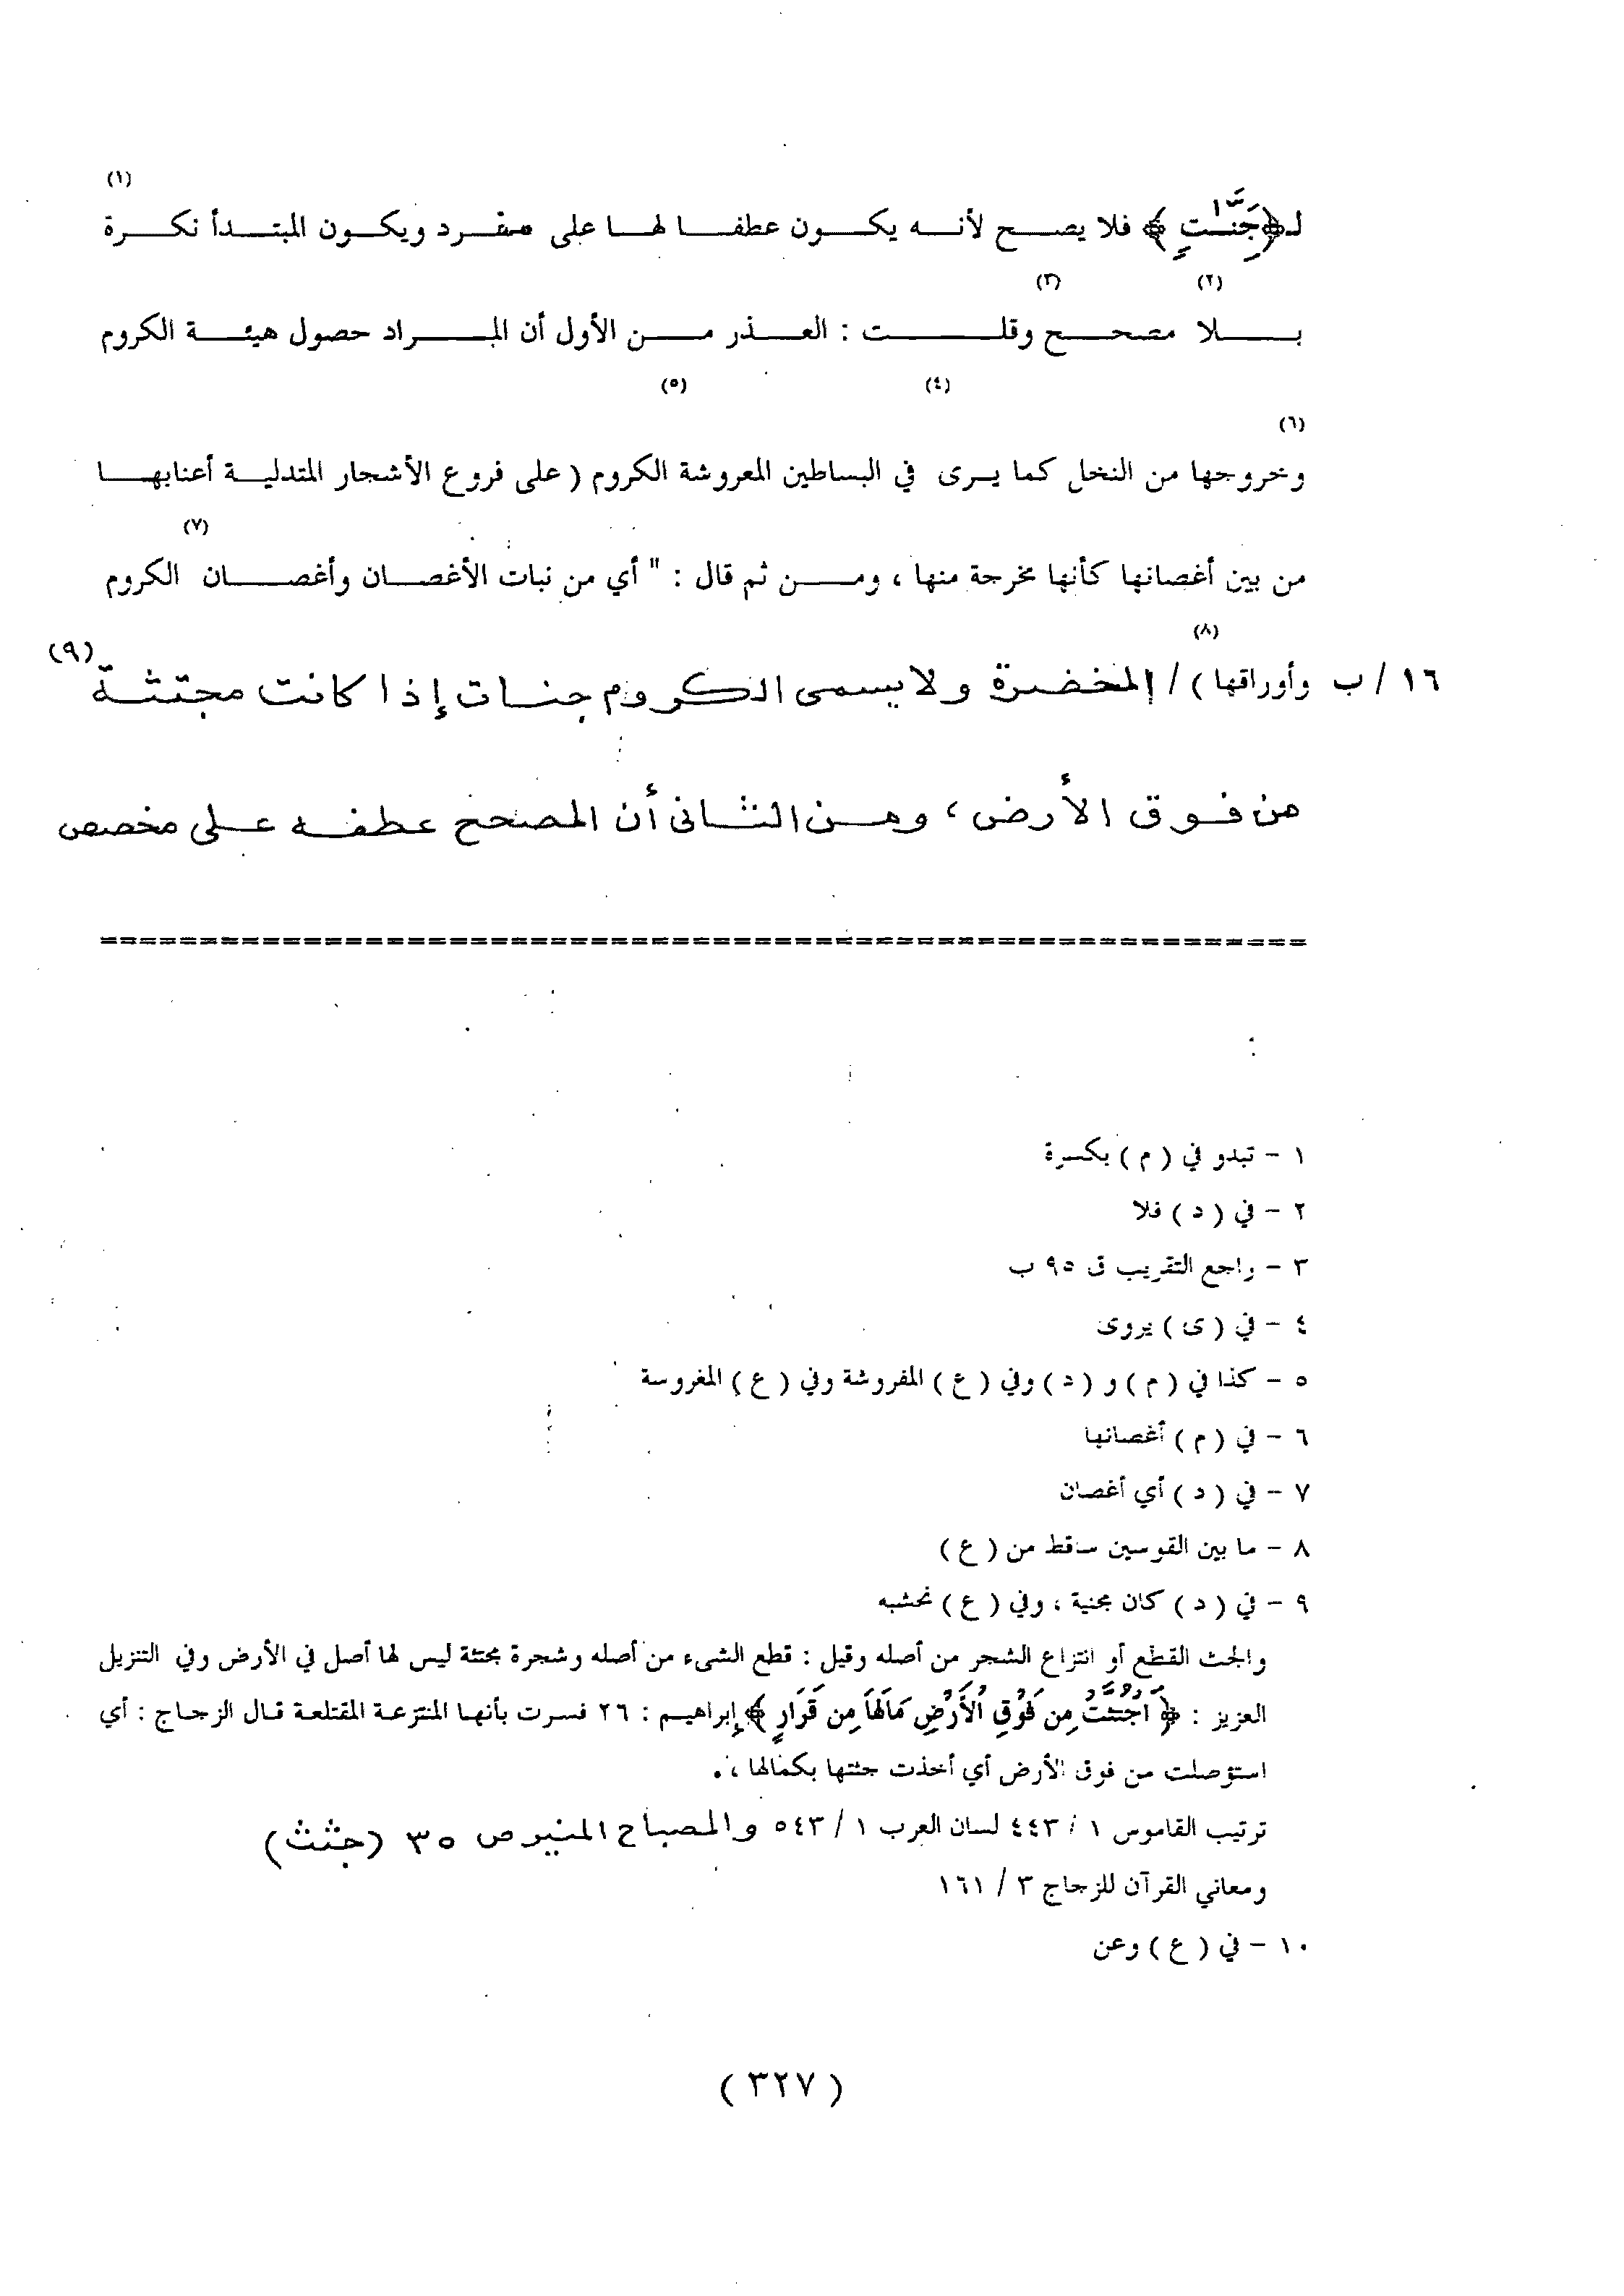 (١)
لـ﴿جَنَّاتٍ﴾ فلا يصح لأنه يكون عطفا لها على مفرد ويكون المبتدأ نكرة
(٢) (٣)
بلا مصحح وقلت : العذر من الأول أن المراد حصول هيئة الكروم
(٤) (٥)
(٦)
وخروجها من النخل كما يرى في البساطين المعروشة الكروم ( على فروع الأشجار المتدلية أعنابها
(٧)
من بين أغصانها كأنها مخرجة منها ، ومن ثم قال : " أي من نبات الأغصان وأغصان الكروم
(٨) (٩)
١٦ / ب وأوراقها ) / المخضرة ولا يسمى الكروم جنات إذا كانت مجتثة
من فوق الأرض ، ومن الثانى أن المصحح عطفه على مخصص
١ - تبدو في ( م ) بكسرة
٢ - في ( د ) فلا
٣ - راجع التقريب ق ٩٥ ب
٤ - في ( ى ) يروى
٥ - كذا في ( م ) و ( د ) وفي ( ع ) المفروشة وفي ( ع ) المغروسة
٦ - في ( م ) أغصانها
٧ - في ( د ) أي أغصان
٨ - ما بين القوسين ساقط من ( ع )
٩ - في ( د ) كان مجنية ، وفي ( ع )
والجث القطع أو انتزاع الشجر من أصله وقيل : قطع الشىء من أصله وشجرة مجتثة ليس لها أصل في الأرض وفي التنزيل
العزيز : ﴿ اجْتُثَّتْ مِن فَوْقِ الْأَرْضِ مَا لَهَا مِن قَرَارٍ ﴾ إبراهيم : ٢٦ فسرت بأنها المنتزعة المقتلعة قال الزجاج : أي
استؤصلت من فوق الأرض أي أخذت جثتها بكمالها ، .
ترتيب القاموس ١ / ٤٤٣ لسان العرب ١ / ٥٤٣ والمصباح المنير ص ٣٥ (جثث)
ومعاني القرآن للزجاج ٣ / ١٦١
١٠ - في ( ع ) وعن
( ٣٢٧ )